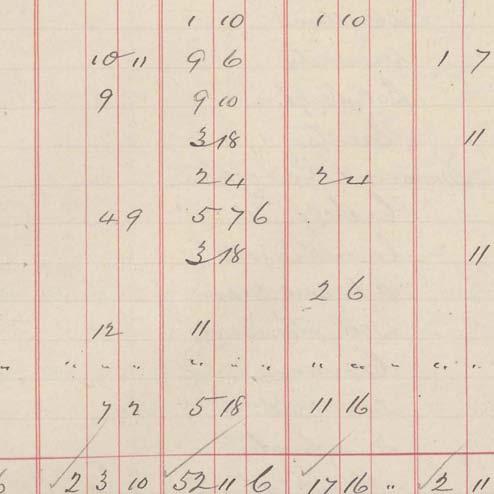 1 10 1 10
10 11 9 6 1 7
9 9 10
3 18 11
2 4 2 4
4 9 5 7 6
3 18 11
2 6
12 11
" " " " " " " " " " " "
7 2 5 18 11 16
6 2 3 10 52 11 6 17 16 " 2 11